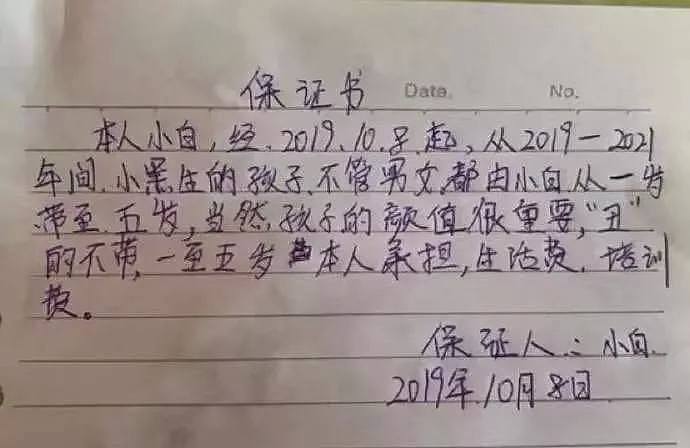 保证书 Date. No.
本人小白,经.2019.10.8起,从2019-2021
年间.小黑生的孩子.不管男女.都由小白从一岁
带至五岁,当然,孩子的颜值很重要,“丑”
的不带,一至五岁 本人承担,生活费.培训
费。
保证人:小白.
2019年10月8日